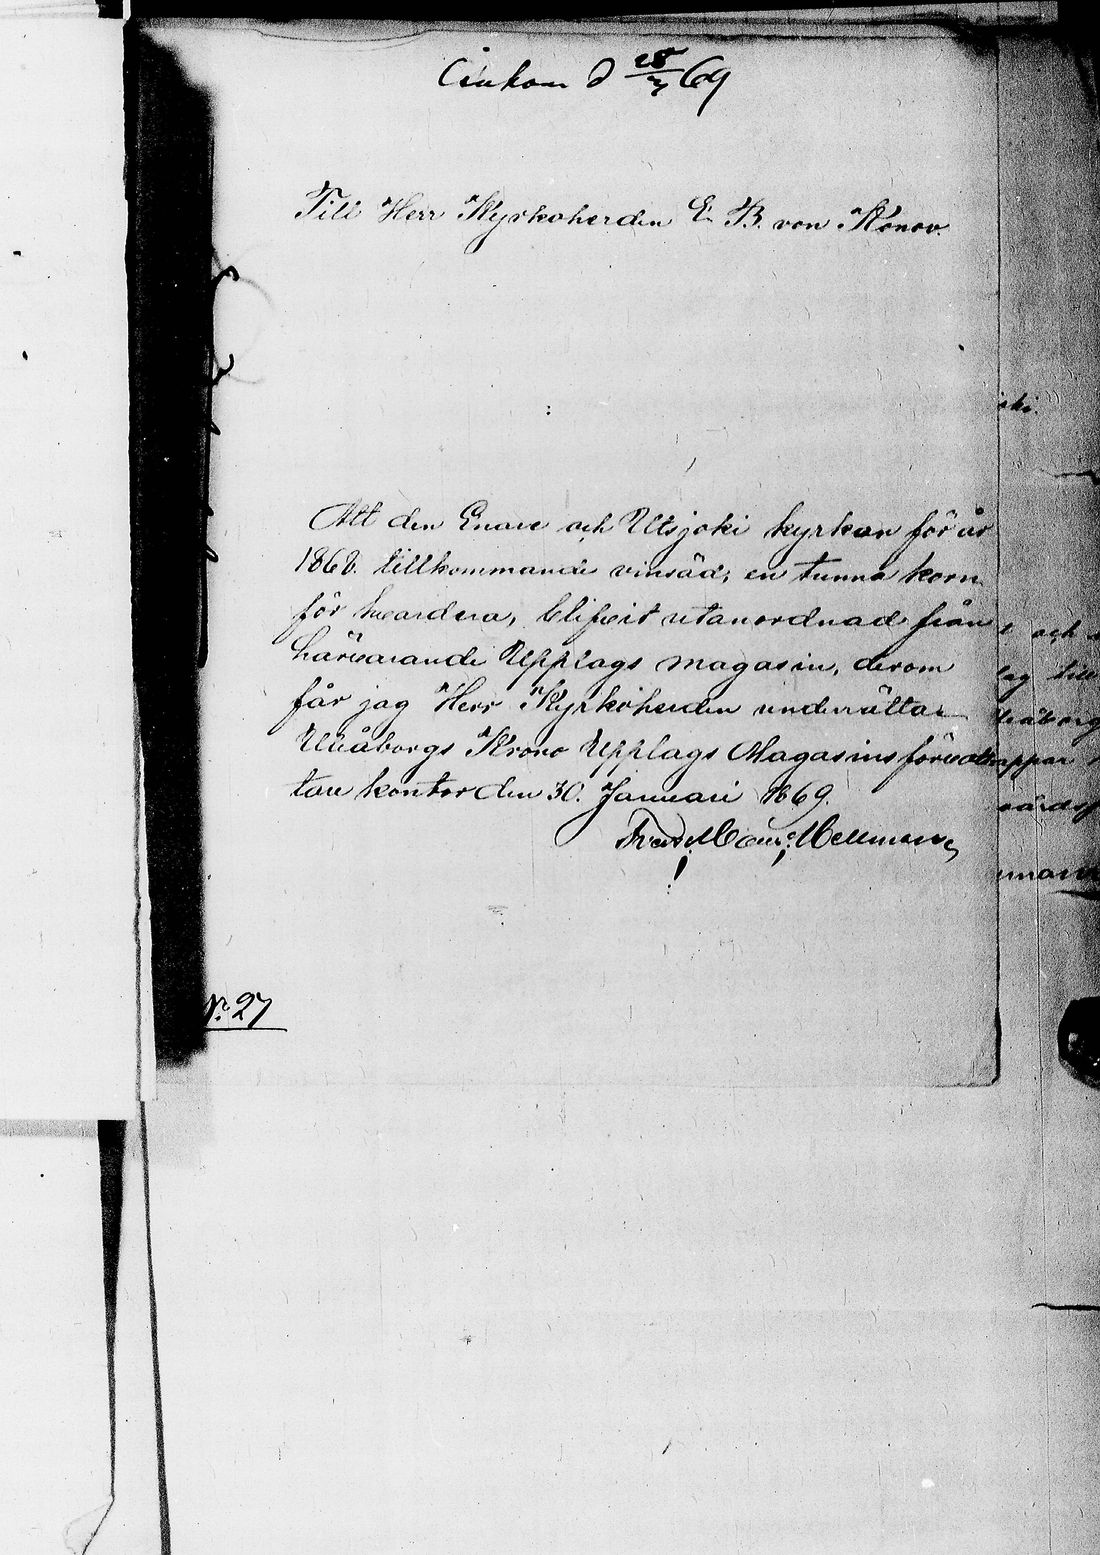 Ankom d 28/3 69
Till Herr Kyrkoherden E. B. von Konov.
Att den Enare och Utsjoki kyrkan för år
1868. tillkommande vinsäd, en tunna korn
för hvardera, blifvit utanordnad från
härvarande Upplags magasin, derom
får jag Herr Kyrkoherden underrätta.
Uleåborgs Krono Upplags Magasins förvalt
tare kontor den 30. Januari 1869.
Hellman
No 27
och
till